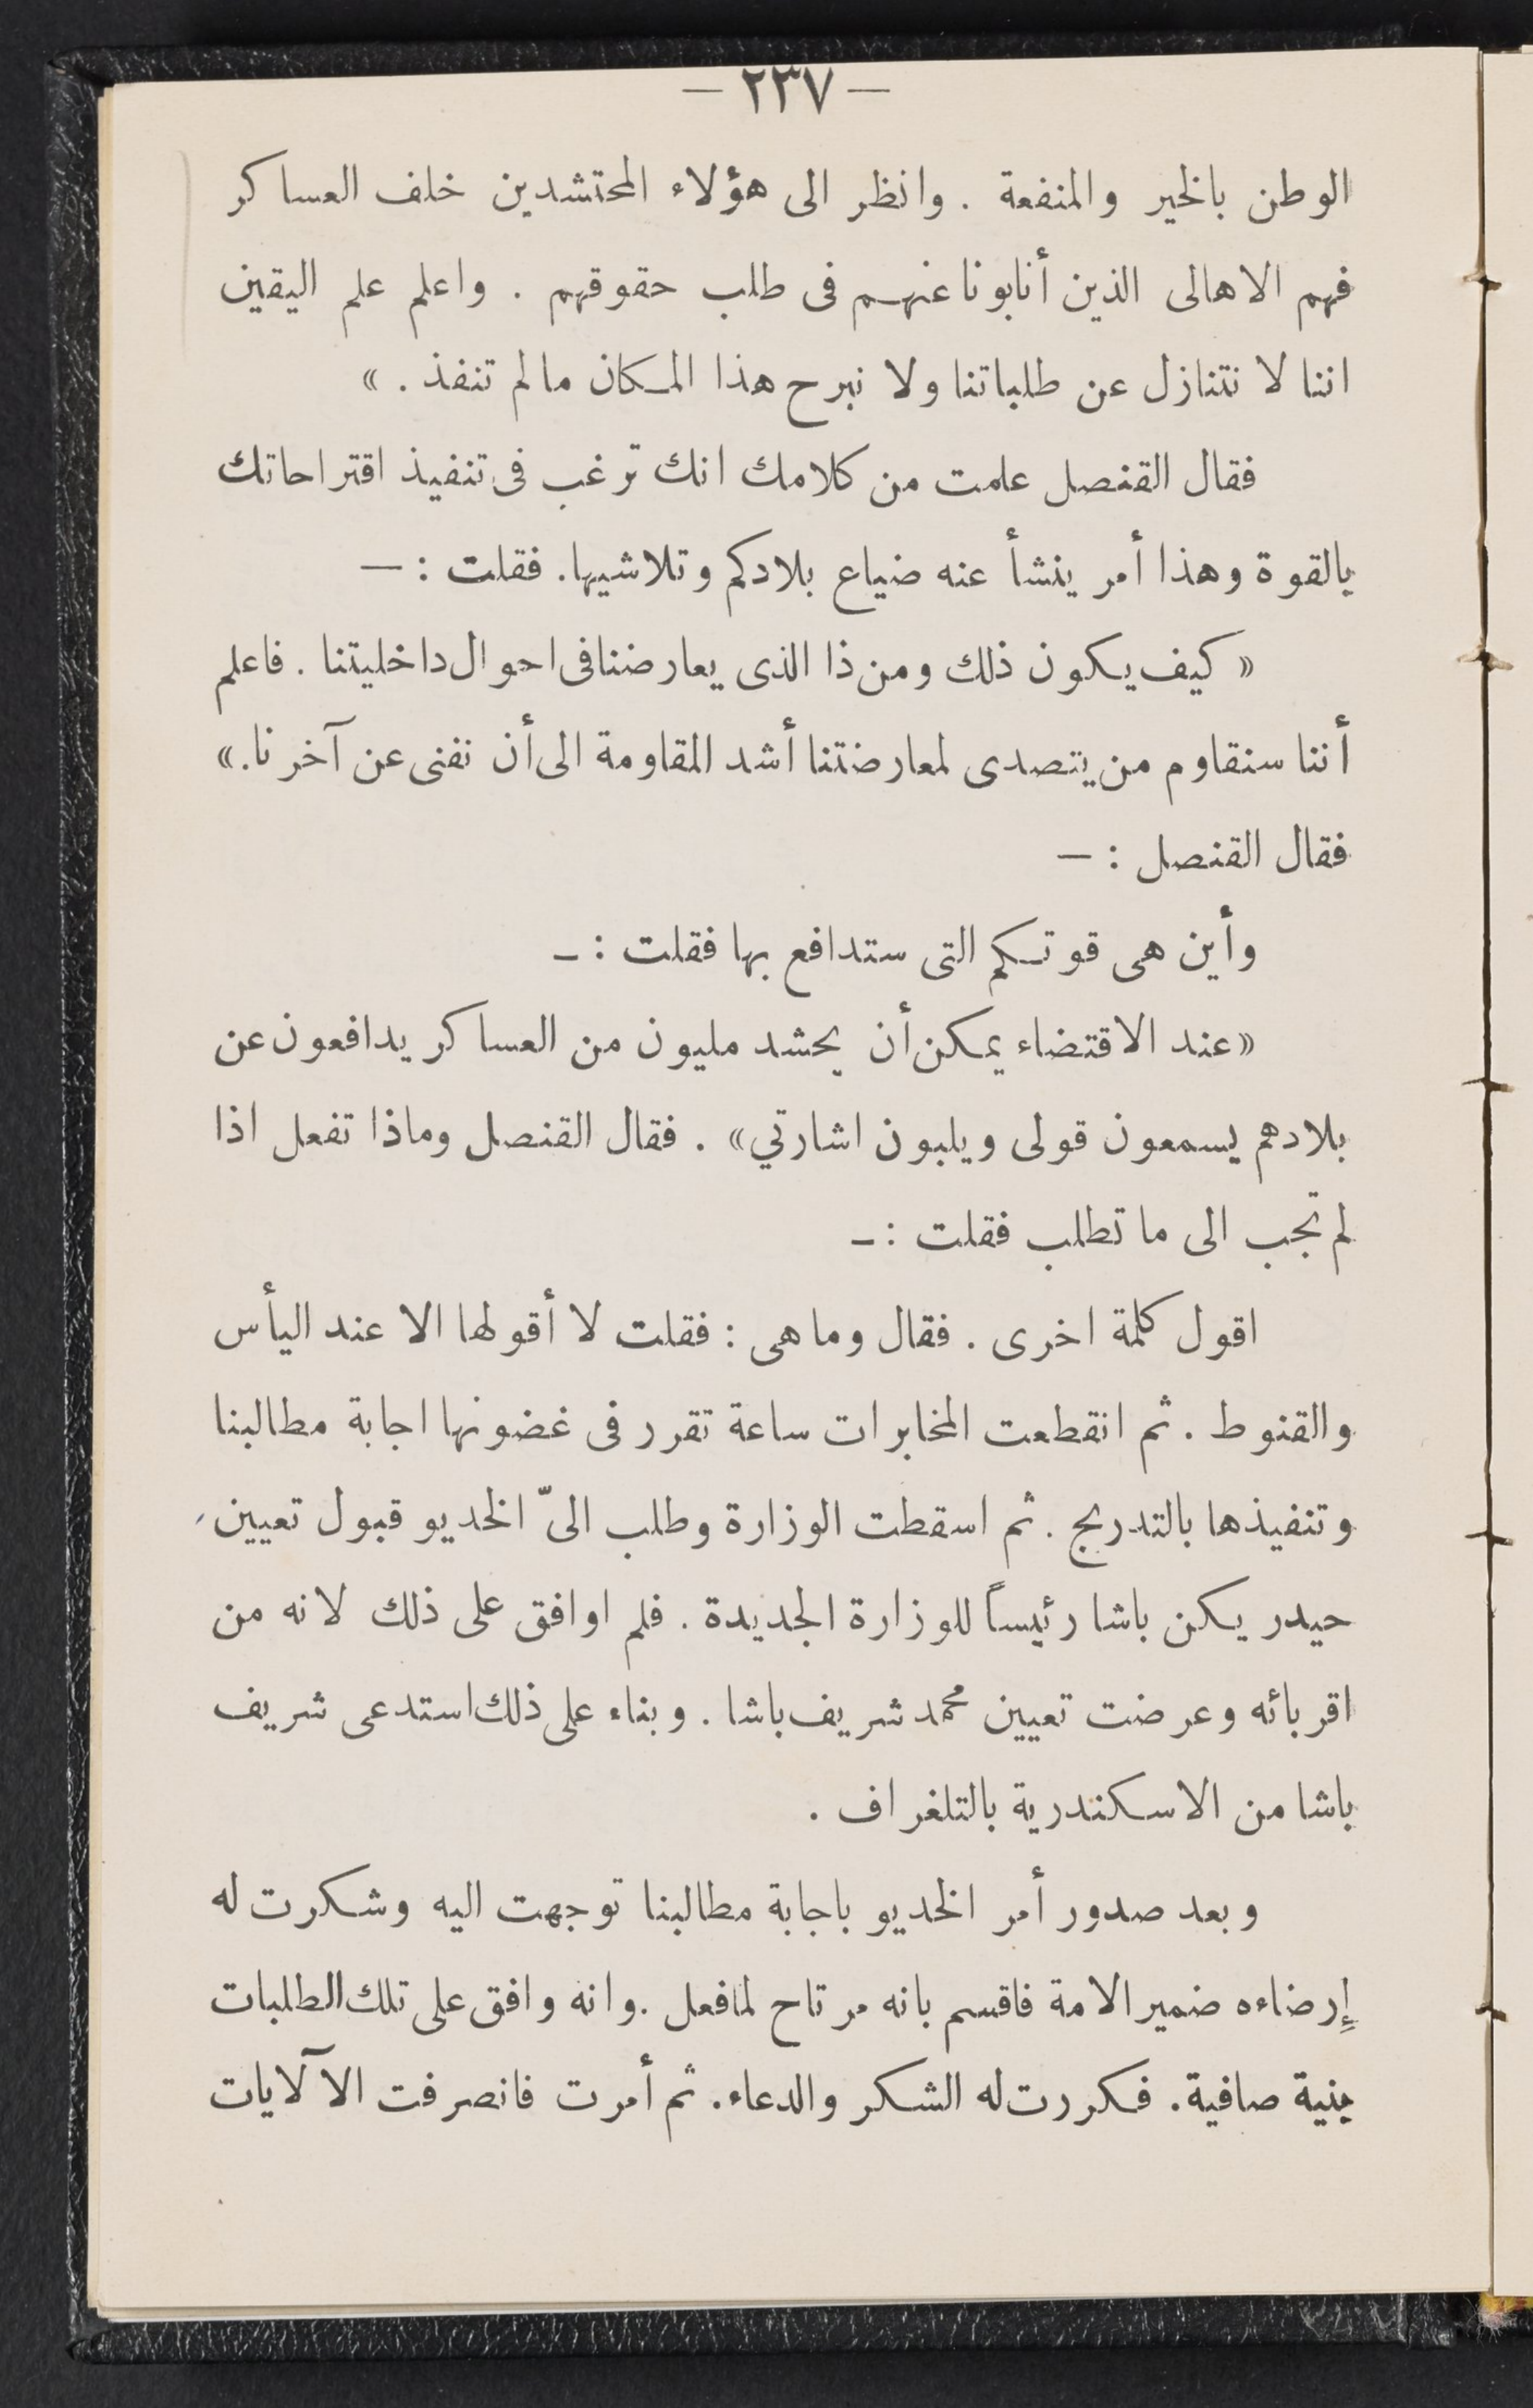 — ٢٣٧ —
الوطن بالخير والمنفعة . وانظر الى هؤلاء المحتشدين خلف العساكر
فهم الاهالى الذين أنابونا عنهم فى طلب حقوقهم . واعلم علم اليقين
اننا لا نتنازل عن طلباتنا ولا نبرح هذا المكان مالم تنفذ . »
فقال القنصل علمت من كلامك انك ترغب فى تنفيذ اقتراحاتك
بالقوة وهذا أمر ينشأ عنه ضياع بلادكم وتلاشيها. فقلت : —
« كيف يكون ذلك ومن ذا الذى يعارضنا فى احوال داخليتنا . فاعلم
أننا سنقاوم من يتصدى لمعارضتنا أشد المقاومة الى أن نفنى عن آخرنا. »
فقال القنصل : —
وأين هى قوتكم التى ستدافع بها فقلت : ـ
«عند الاقتضاء يمكن أن يحشد مليون من العساكر يدافعون عن
بلادهم يسمعون قولى ويلبون اشارتي» . فقال القنصل وماذا تفعل اذا
لم تجب الى ما تطلب فقلت : ـ
اقول كلمة اخرى . فقال وما هى : فقلت لا أقولها الا عند اليأس
والقنوط . ثم انقطعت المخابرات ساعة تقرر فى غضونها اجابة مطالبنا
وتنفيذها بالتدريج . ثم اسقطت الوزارة وطلب الىّ الخديو قبول تعيين
حيدر يكن باشا رئيساً للوزارة الجديدة . فلم اوافق على ذلك لانه من
اقربائه وعرضت تعيين محمد شريف باشا . وبناء على ذلك استدعى شريف
باشا من الاسكندرية بالتلغراف .
وبعد صدور أمر الخديو باجابة مطالبنا توجهت اليه وشكرت له
إرضاءه ضمير الامة فاقسم بانه مرتاح لما فعل . وانه وافق على تلك الطلبات
بنية صافية. فكررت له الشكر والدعاء. ثم أمرت فانصرفت الآلايات